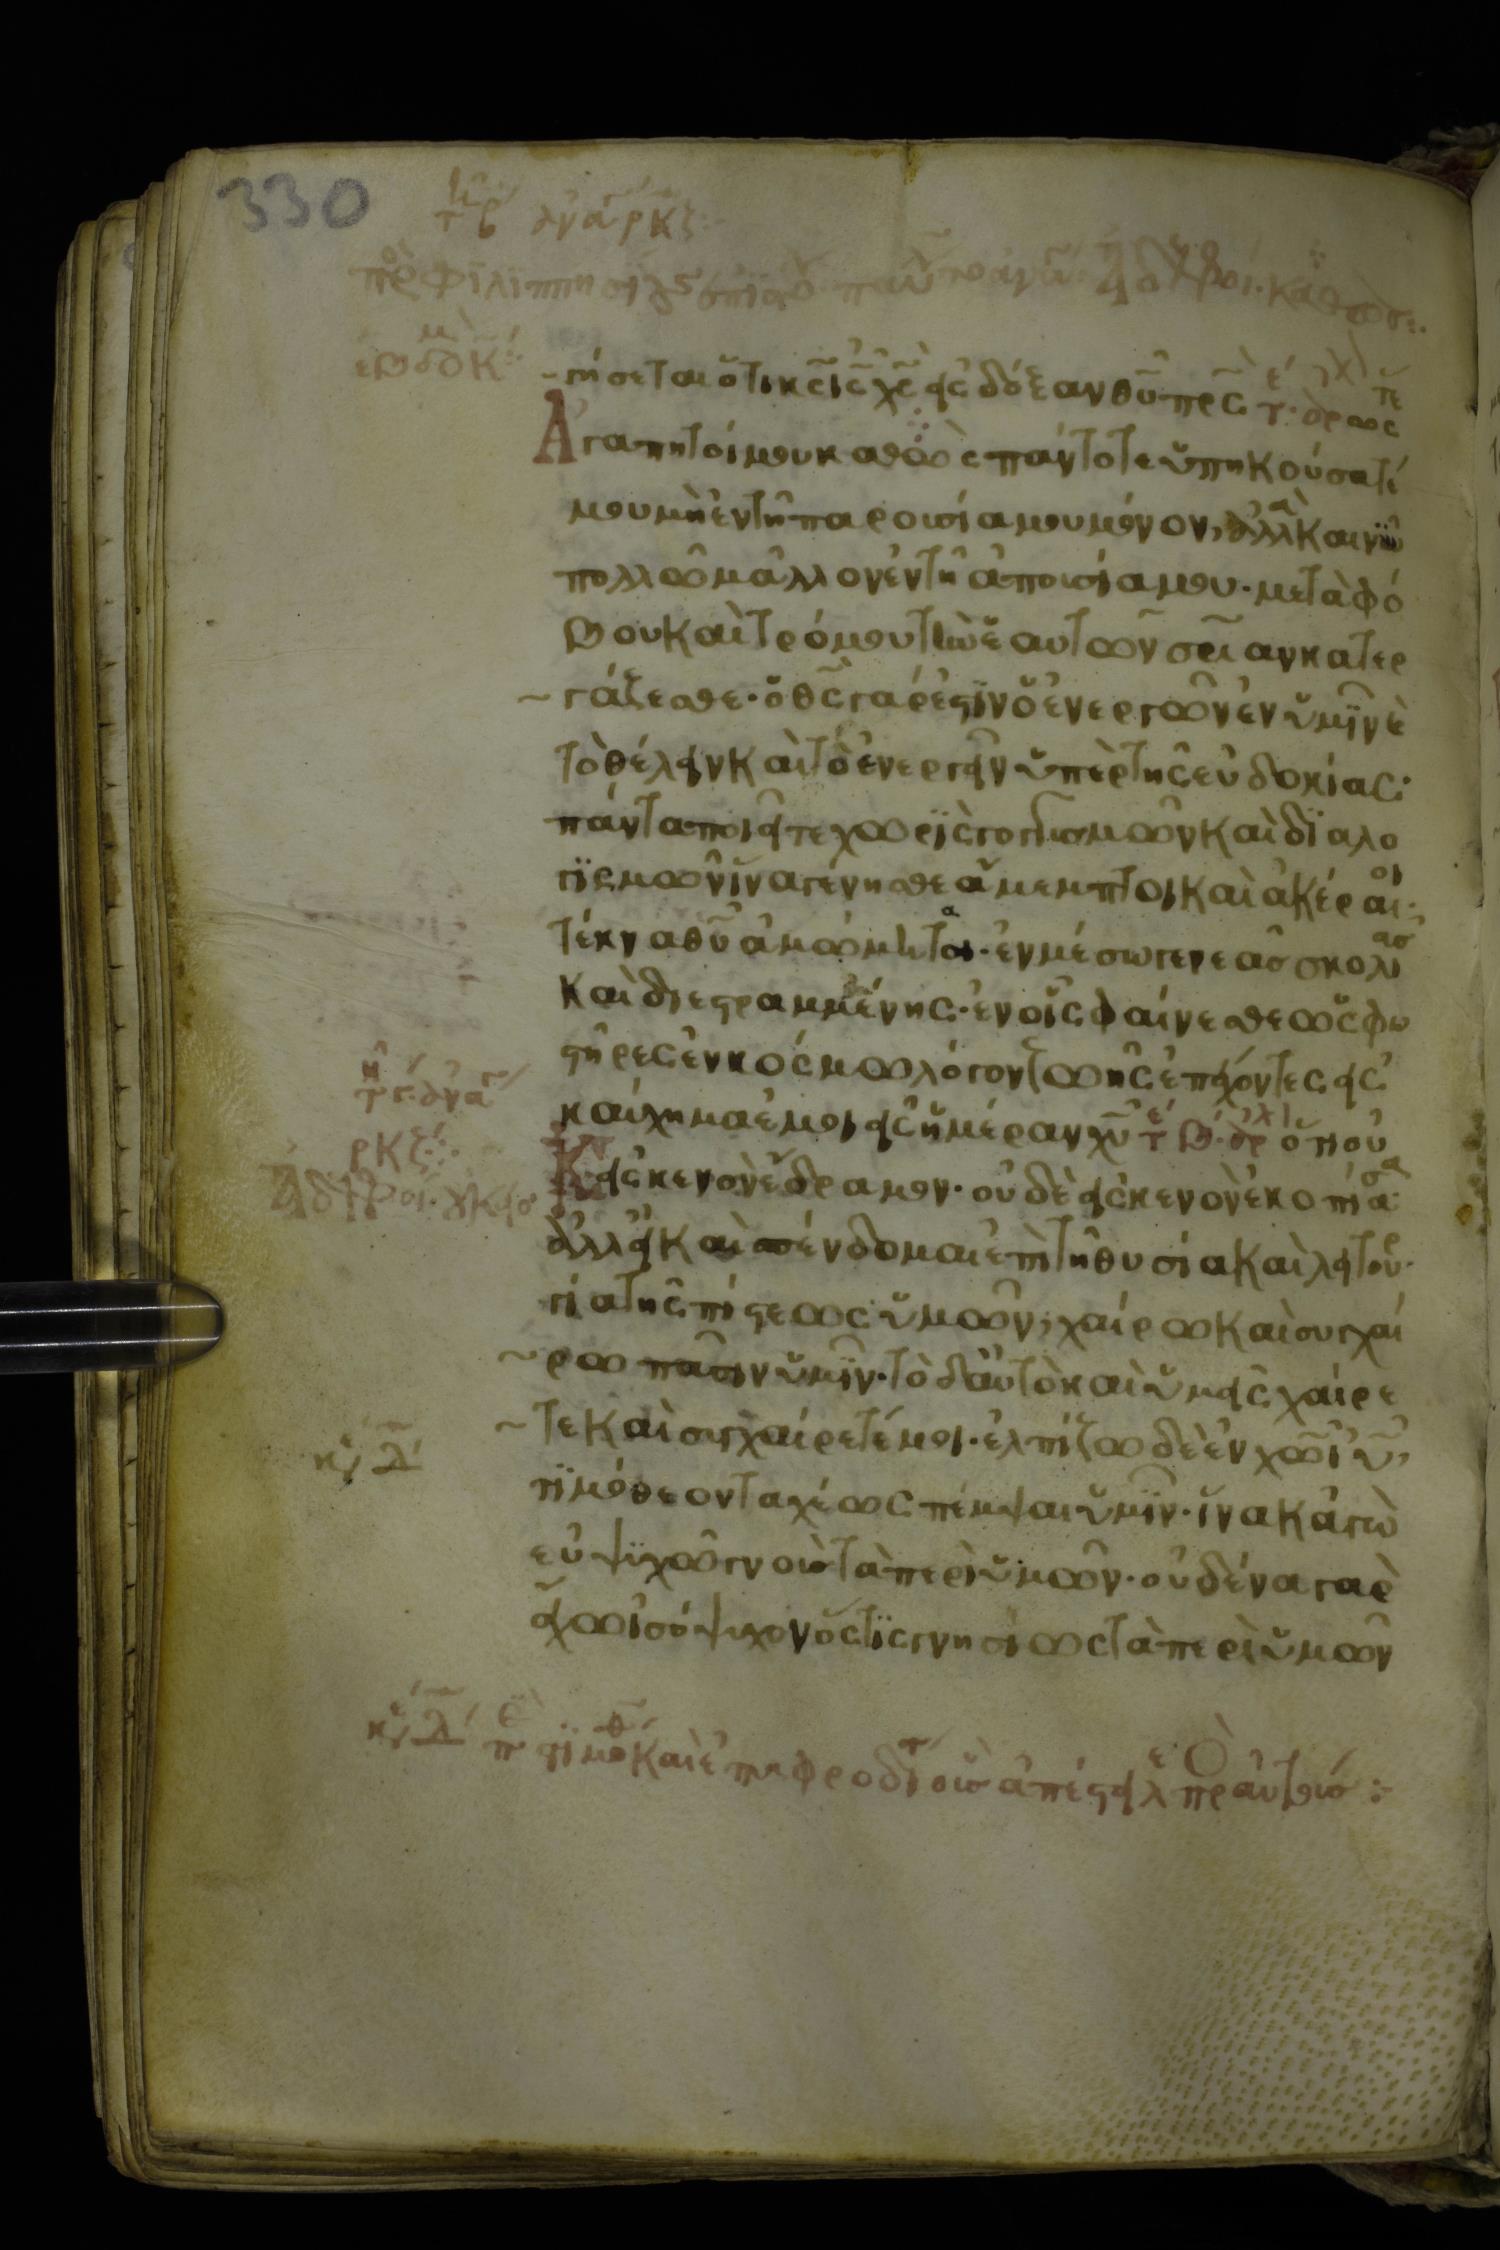 330
ρκζ
-γήσεται ὅτι κ̅ς̅ ι̅ς̅ χ̅ς̅ εἰς δόξαν θ̅υ̅ π̅ρ̅ς̅ ὥστε
Ἀγαπητοί μου καθὼς πάντοτε ὑπηκούσατέ
μου μὴ ἐν τῆ παρουσία μου μόνον, ἀλλὰ καὶ νῦν
πολλῶ μᾶλλον ἐν τῆ ἀπουσία μου· μετὰ φό
βου καὶ τρόμου τὴν ἑαυτῶν σ̅ρ̅ι̅αν κατερ
~ γάζεσθε· ὁ θ̅ς̅ γάρ ἐστιν ὁ ἐνεργῶν ἐν ὑμῖν καὶ
τὸ θέλειν καὶ τὸ ἐνεργεῖν ὑπὲρ τῆς εὐδοκίας·
πάντα ποιεῖτε χωρὶς γογγυσμῶν καὶ διαλο
γισμῶν ἵνα γένησθε ἄμεμπτοι καὶ ἀκέραιοι·
τέκνα θ̅υ̅ ἀμώμητα· ἐν μέσω γενεᾶς σκολιᾶς
καὶ διεστραμμένης· ἐν οἷς φαίνεσθε ὡς φω
στῆρες ἐν κόσμω λόγον ζωῆς ἐπέχοντες εἰς
καύχημα ἐμοὶ εἰς ἡμέραν χ̅υ̅ ὅτι οὐ
ρκζ
κ εἰς κενὸν ἔδραμον· οὐδὲ εἰς κενὸν ἐκοπίασα·
ἀλλ' εἰ καὶ σπένδομαι ἐπὶ τῆ θυσία καὶ λειτουρ
γία τῆς πίστεως ὑμῶν, χαίρω καὶ συγχαί
~ ρω πᾶσιν ὑμῖν· τὸ δ' αὐτὸ καὶ ὑμεῖς χαίρε
~ τε καὶ συγχαίρετέ μοι· ἐλπίζω δὲ ἐν χ̅ω̅ ι̅υ̅,
τιμόθεον ταχέως πέμψαι ὑμῖν· ἵνα κἀγὼ
εὐψυχῶ γνοὺς τὰ περὶ ὑμῶν· οὐδένα γαρ
ἔχω ἰσόψυχον ὅστις γνησίως τὰ περὶ ὑμῶν